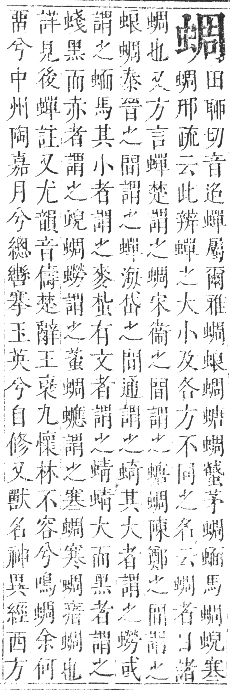 蜩 田聊切音迢蟬屬爾雅蜩蜋蜩螗蜩蠽茅蜩蝒馬蜩蜺寒
蜩邢疏云此辨蟬之大小及各方不同之名云蜩者目諸
蜩也又方言蟬楚謂之蜩宋衞之間謂之螗蜩陳鄭之間謂之
蜋蜩秦晉之間謂之蟬海岱之間通謂之䗁其大者謂之蟧或
謂之蝒馬其小者謂之麥蚻有文者謂之蜻蜻大而黑者謂之
䗃黑而赤者謂之蜺蜩蟧謂之蓋蜩𧕄謂之寒蜩寒蜩瘖蜩也
詳見後蟬註又尤韻音儔楚辭王襃九懷林不容兮鳴蜩余何
畱兮中州陶嘉月兮總轡搴玉英兮自修又獸名神異經西方